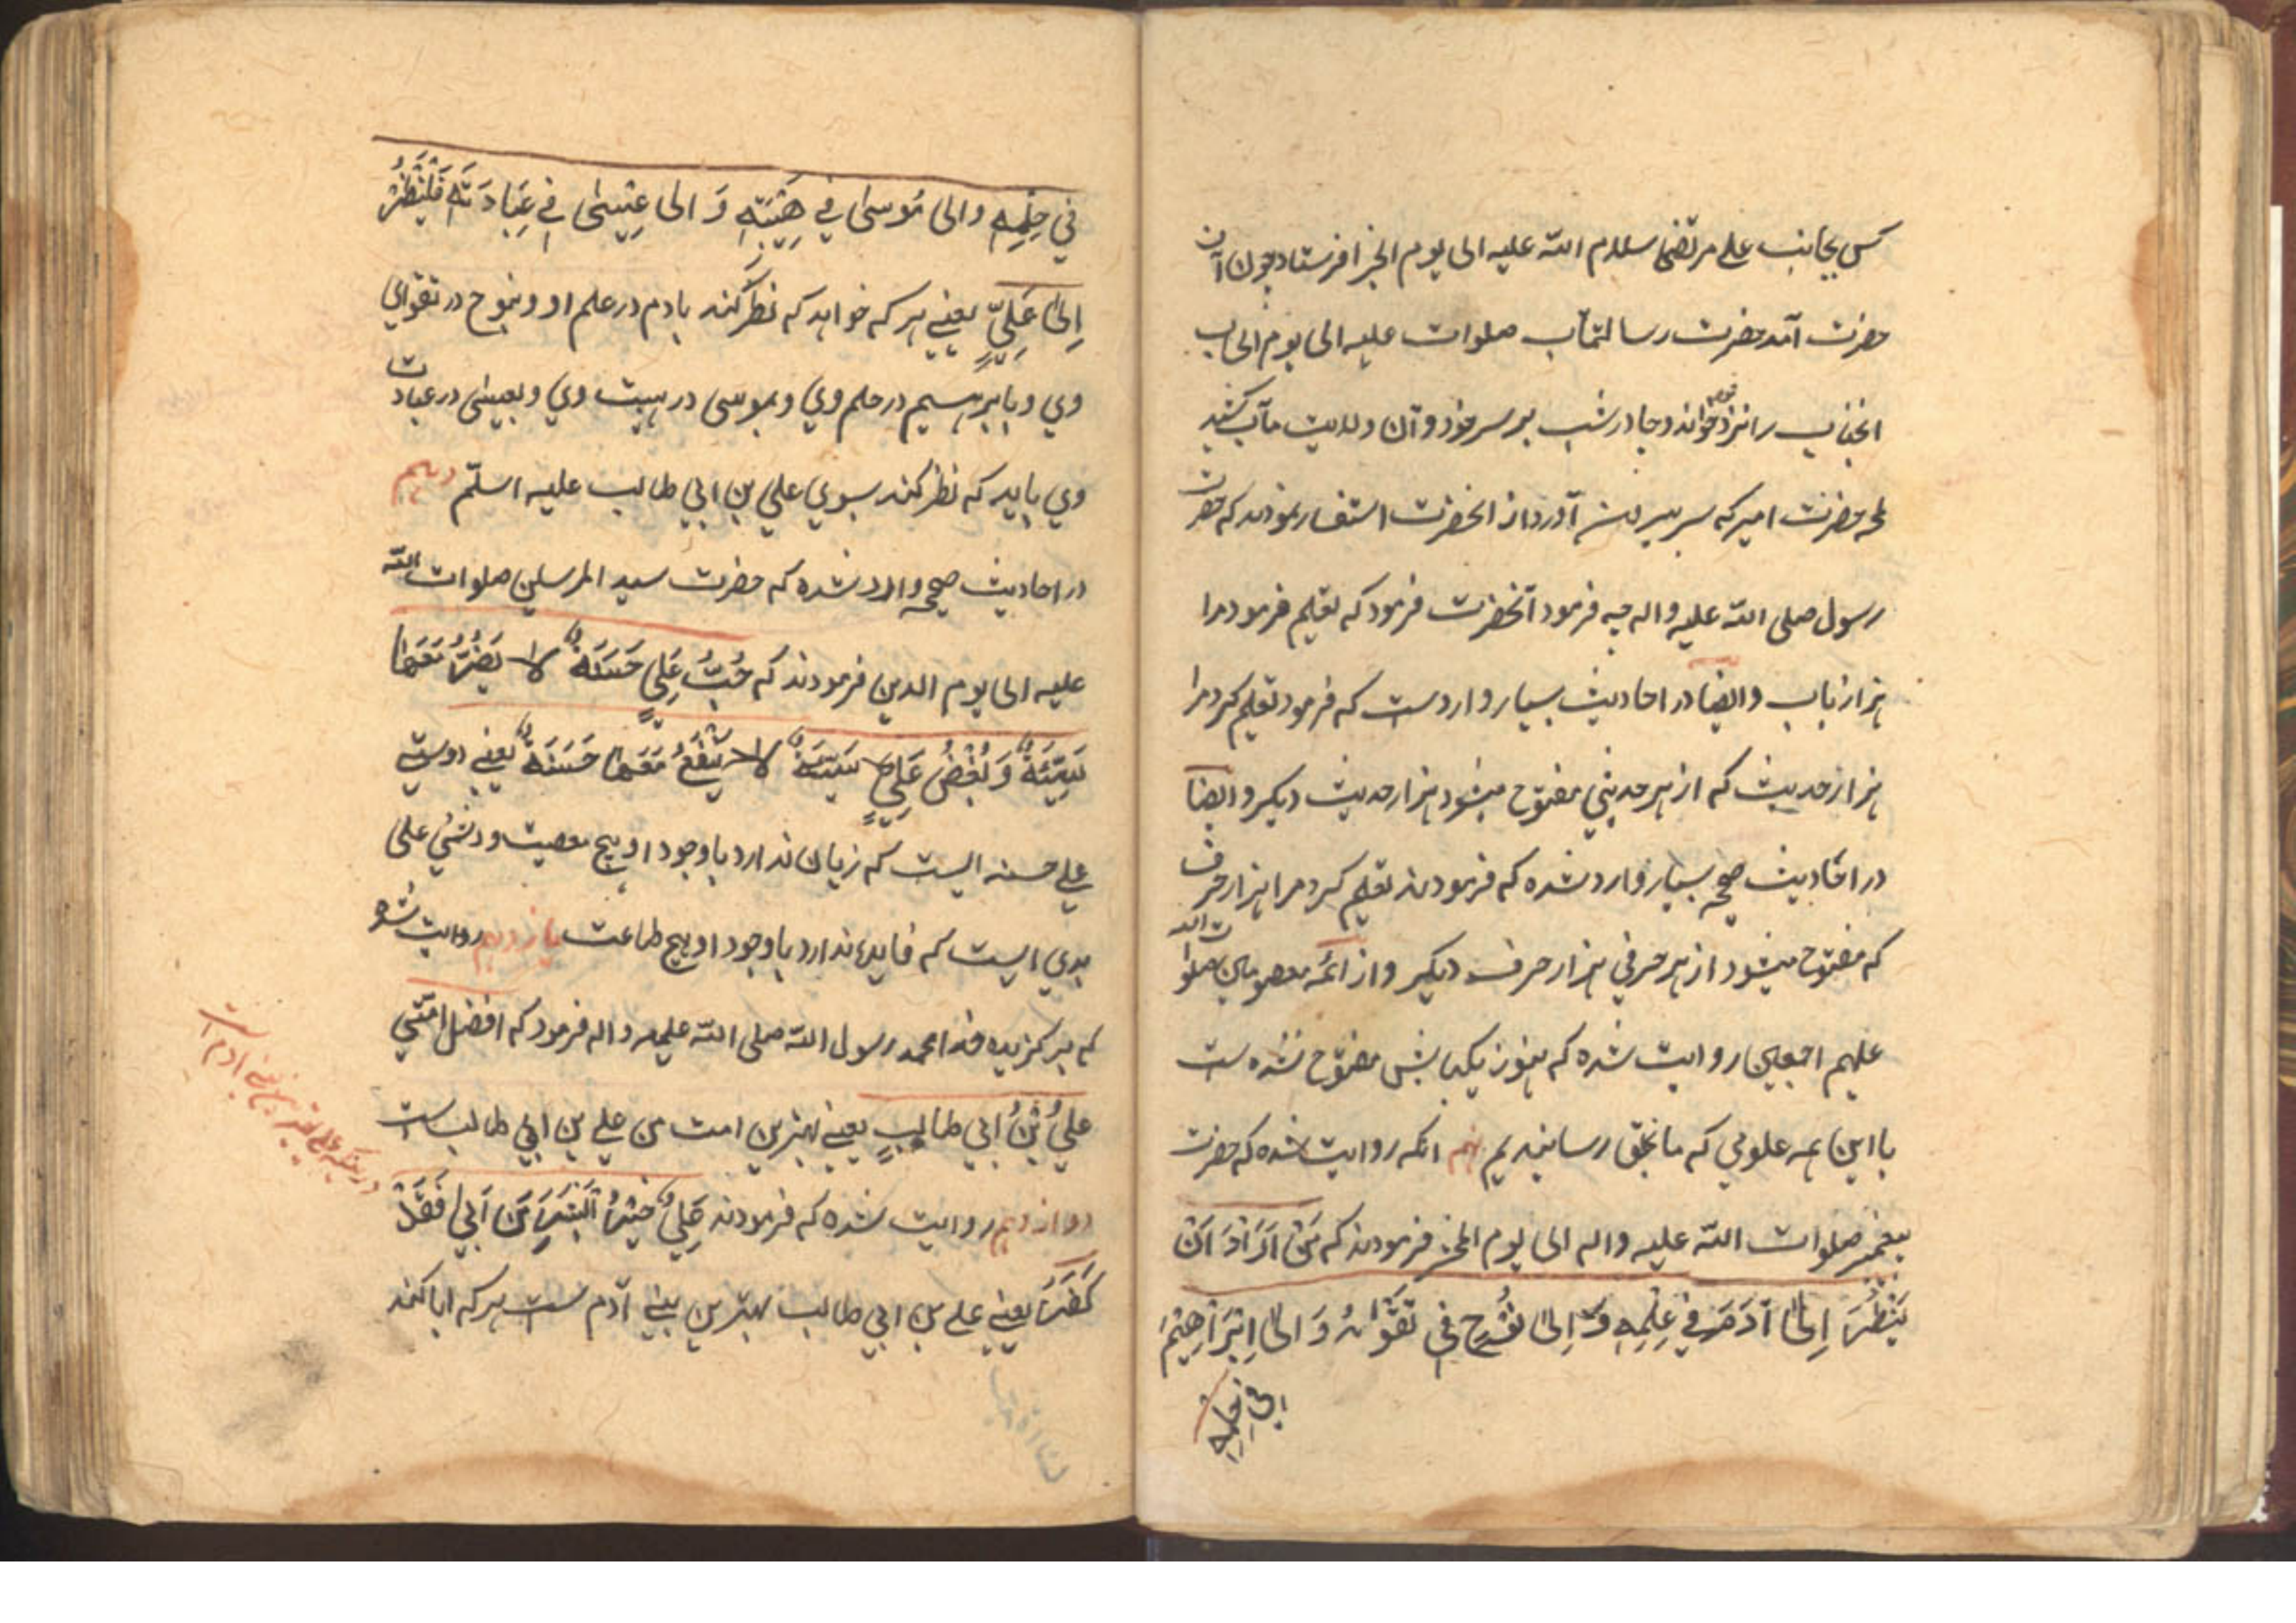 کس بجانب علی مرتضی سلام الله علیه الی یوم الجزا فرستاد چون آن
حضرت آمد حضرت رسالتمآب صلوات علیه الی یوم الحساب
انجناب را نزد خود خواند و چادر شب بر سر خود و آن ولایت مآب کشید
حضرت امیر که سر بیرون آورد از انحضرت استفسار نمودند که حضرت
رسول صلی الله علیه واله چه فرمود آنحضرت فرمود که تعلیم فرمود مرا
هزار باب وایضا در احادیث بسیار واردست که فرمود تعلیم کرد مرا
هزار حدیث که از هر حدیثی مفتوح میشود هزار حدیث دیکر وایضا
در احادیث صحیحه بسیار وارد شده که فرمودند تعلیم کرد مرا هزار حرف
که مفتوح میشود از هر حرفی هزار حرف دیکر واز ائمه معصومین صلوات الله
علیهم اجمعین روایت شده که هنوز یکبابش مفتوح نشده ست
با این همه علومی که ما بخلق رسانیدیم نهم انکه روایت شده که حضرت
پیغمبر صلوات الله علیه واله الی یوم المحشر فرمودند که مَنْ اَرَادَ اَنْ
یَنْظُرَ اِلیٰ آدَمَ فِی عِلْمِهِ وَ اِلیٰ نُوْحٍ فِی تَقْوَاهُ وَ اِلیٰ اِبْرَاهِیْمَ
فِی حِلْمِهِ
فِی حِلْمِهِ والی مُوسیٰ فِی هَیْبَتِهِ وَ الی عِیْسیٰ فِی عِبَادَتِهِ فَلْیَنْظُرْ
اِلیٰ عَلِیٍّ یعنی هر که خواهد که نظر کند بادم در علم او و بنوح در تقوای
وی و بابرهیم در حلم وی و بموسی در هیبت وی و بعیسی در عبادت
وی باید که نظر کند بسوی علی بن ابی طالب علیه اسلّم دهم
در احادیث صحیحه وارد شده که حضرت سید المرسلین صلوات الله
علیه الی یوم الدین فرمودند که حُبُّ عَلِیٍّ حَسَنَةٌ لا یَضُرُّ مَعَهَا
سَیِّئَةٌ وَ بُغْضُ عَلِیٍّ سَیِّئَةٌ لا یَنْفَعُ مَعَهَا حَسَنَةٌ یعنی دوستی
علی حسنه ایست که زیان ندارد باوجود او هیچ معصیت و دشمنی علی
بدی ایست که فایده ندارد باوجود او هیچ طاعت یازدهم روایت شده
که برکزیده خدا محمد رسول الله صلی الله علیه واله فرمود که افضل امّتی
علیُّ بْنُ اَبی طالِبٍ یعنی بهترین امت من علی بن ابی طالب ست
دوازدهم روایت شده که فرمودند عَلِیٌّ خَیْرُ الْبَشَرِ مَنْ اَبیٰ فَقَدْ
کَفَرَ یعنی علی بن ابی طالب بهترین بنی آدم ست هر که ابا کند